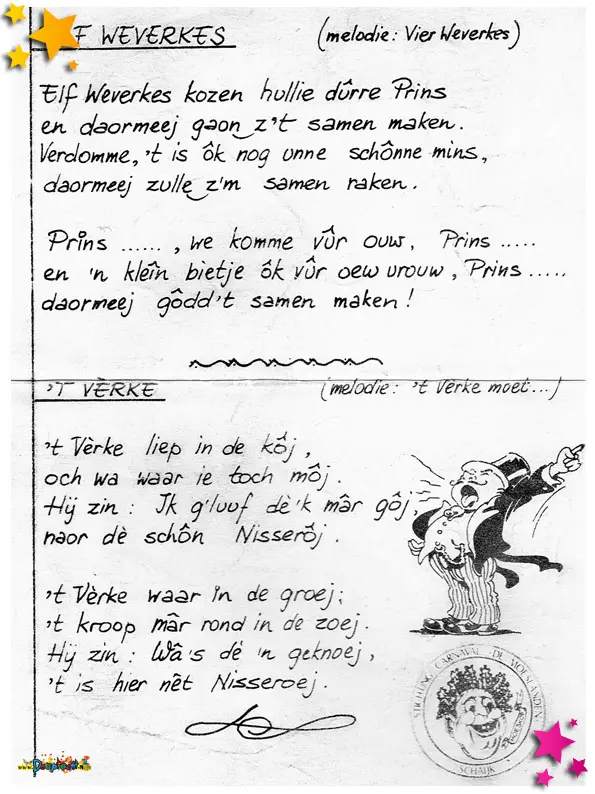 F WEVERKES (melodie: Vier Weverkes)
Elf Weverkes kozen hullie dûrre Prins
en daormeej gaon z't samen maken.
Verdomme, 't is ôk nog unne schônne mins,
daormeej zulle z'm samen raken.
Prins ......, we komme vûr ouw, Prins .....
en 'n kleîn bietje ôk vûr oew vrouw, Prins .....
daormeej gôdd't samen maken!
'T VÈRKE (melodie: 't Vèrke moet...)
't Vèrke liep in de kôj,
och wa waar ie toch môj.
Hij zin: Ik g'luuf dè'k mâr gôj,
naor dè schôn Nisserôj.
't Vèrke waar in de groej;
't kroop mâr rond in de zoej.
Hij zin: Wâ's dè 'n geknoej,
't is hier nêt Nisseroej.
STICHTING CARNAVAL DE MOESLANDEN
SCHAIJK